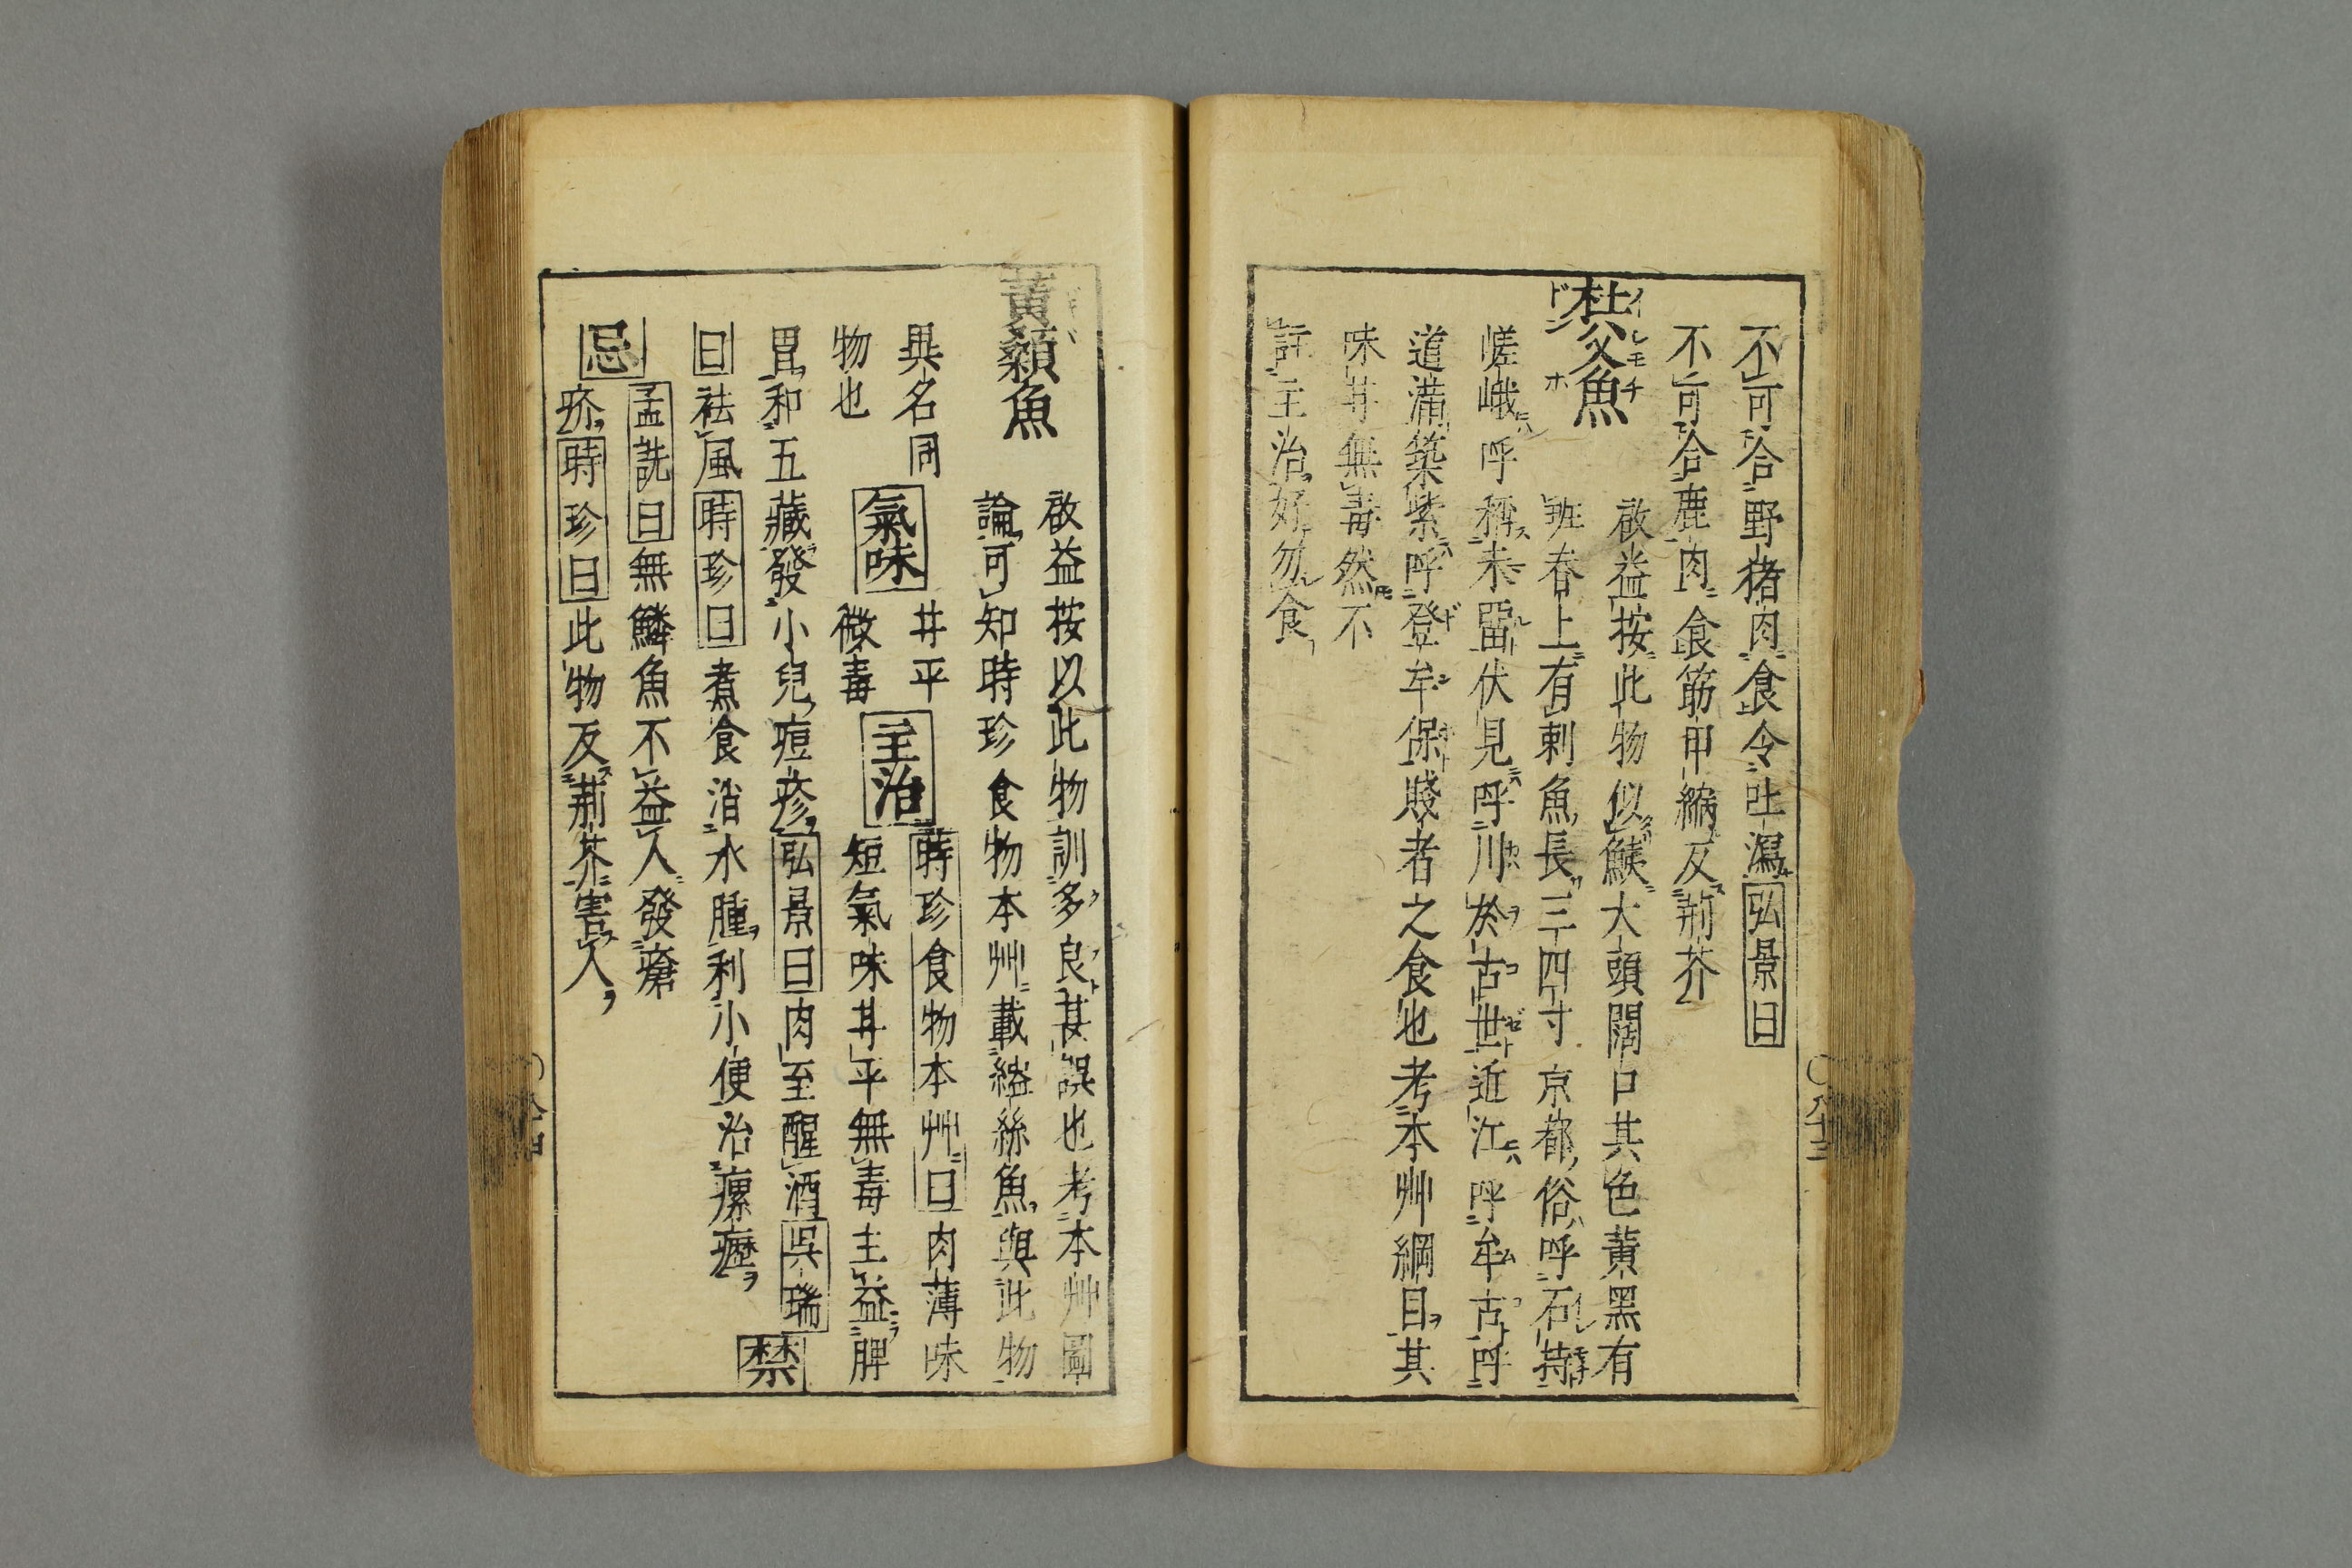 不可合野猪肉食令吐瀉弘景曰
不可合鹿肉食筋甲縮反荊芥
杜父魚
イシモチ
ドンホ
啟益按此物似鮧大頭闊口其色黃黑有
班春上有刺魚長三四寸京都俗呼石持
嵯峨呼稱未畱伏見呼川於古世近江呼牟古呼
道滿築紫呼登牟保賤者之食也考本艸綱目其
味甘無毒然不
註主治好勿食
八十三
黃顙魚
啟益按以此物訓多良甚誤也考本艸圖
論可知時珍食物本艸載縊絲魚與此物
異名同
物也
氣味
甘平
微毒
主治
時珍食物本艸曰肉薄味
短氣味甘平無毒主益脾
胃和五藏發小兒痘疹弘景曰肉至醒酒吳瑞
曰祛風時珍曰煮食消水腫利小便治瘰癧
禁
忌
孟詵曰無鱗魚不益人發瘡
疥時珍曰此物反荊芥害人